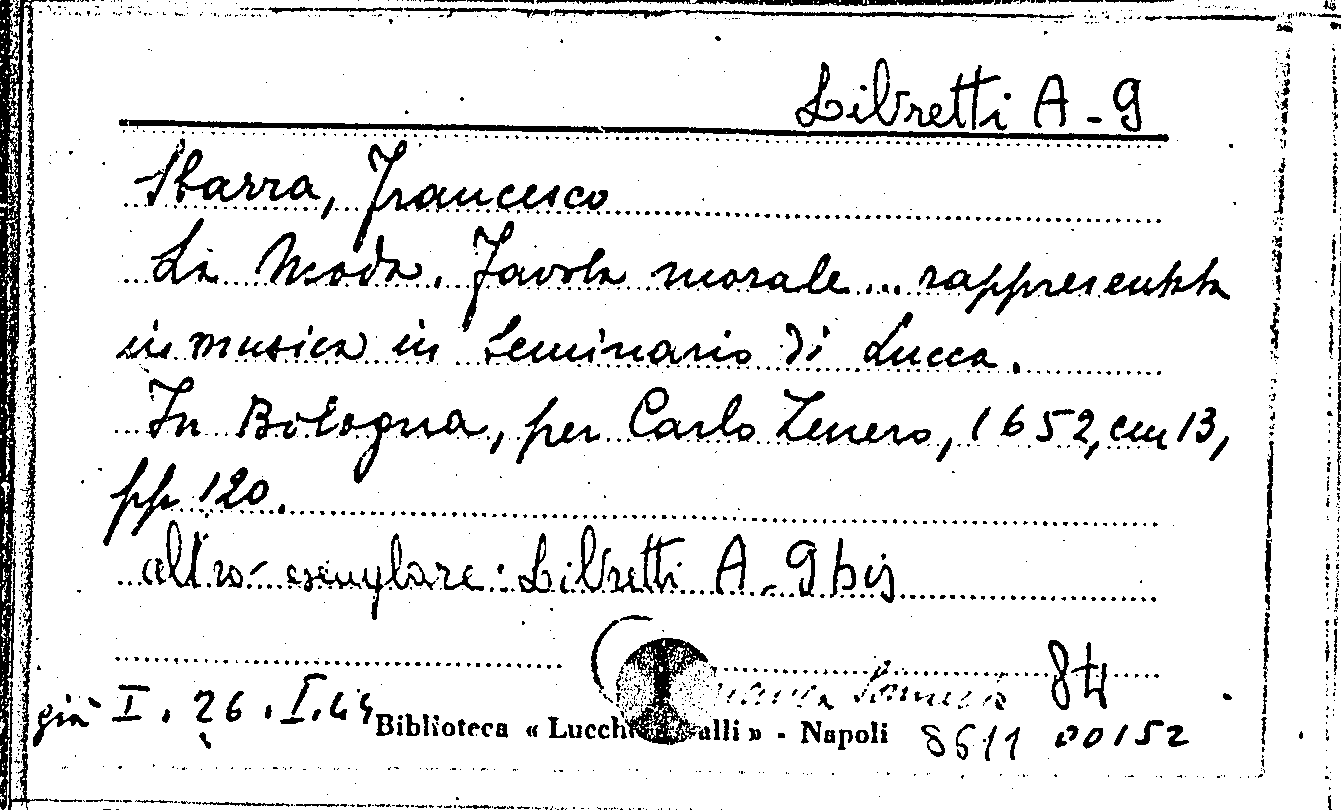 Libretti A-9
Sbarra, Francesco
La Moda. Favola morale... rappresentata
in musica in Seminario di Lucca.
In Bologna, per Carlo Zenero, 1652, cm 13,
pp. 120.
altro esemplare: Libretti A-9 bis
84
già I. 26. I.44
Biblioteca « Lucchesi Palli » - Napoli
8611 00152